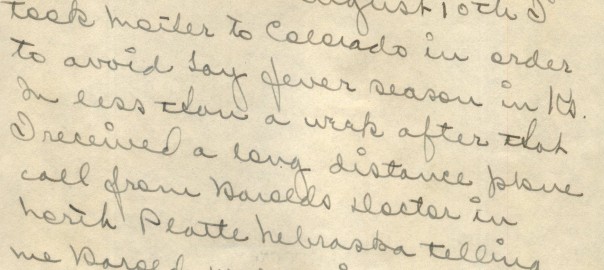 August 10th I
took Mother to Colorado in order
to avoid hay fever season in Ks.
In less than a week after that
I received a long distance phone
call from Harolds Doctor in
North Platte Nebraska telling
me Harold